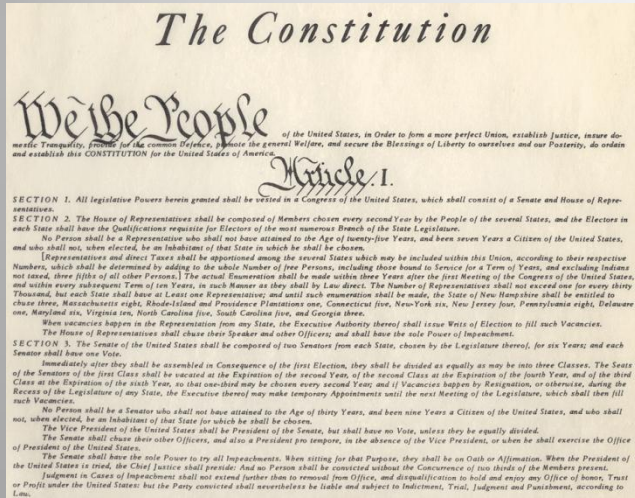 The Constitution
We the People
of the United States, in Order to form a more perfect Union, establish Justice, insure do-
mestic Tranquility, provide for the common Defence, promote the general Welfare, and secure the Blessings of Liberty to ourselves and our Posterity, do ordain
and establish this CONSTITUTION for the United States of America.
Article. I.
SECTION 1. All legislative Powers herein granted shall be vested in a Congress of the United States, which shall consist of a Senate and House of Repre-
sentatives.
SECTION 2. The House of Representatives shall be composed of Members chosen every second Year by the People of the several States, and the Electors in
each State shall have the Qualifications requisite for Electors of the most numerous Branch of the State Legislature.
No Person shall be a Representative who shall not have attained to the Age of twenty-five Years, and been seven Years a Citizen of the United States,
and who shall not, when elected, be an Inhabitant of that State in which he shall be chosen.
[Representatives and direct Taxes shall be apportioned among the several States which may be included within this Union, according to their respective
Numbers, which shall be determined by adding to the whole Number of free Persons, including those bound to Service for a Term of Years, and excluding Indians
not taxed, three fifths of all other Persons.] The actual Enumeration shall be made within three Years after the first Meeting of the Congress of the United States,
and within every subsequent Term of ten Years, in such Manner as they shall by Law direct. The Number of Representatives shall not exceed one for every thirty
Thousand, but each State shall have at Least one Representative; and until such enumeration shall be made, the State of New Hampshire shall be entitled to
chuse three, Massachusetts eight, Rhode-Island and Providence Plantations one, Connecticut five, New-York six, New Jersey four, Pennsylvania eight, Delaware
one, Maryland six, Virginia ten, North Carolina five, South Carolina five, and Georgia three.
When vacancies happen in the Representation from any State, the Executive Authority thereof shall issue Writs of Election to fill such Vacancies.
The House of Representatives shall chuse their Speaker and other Officers; and shall have the sole Power of Impeachment.
SECTION 3. The Senate of the United States shall be composed of two Senators from each State, chosen by the Legislature thereof, for six Years; and each
Senator shall have one Vote.
Immediately after they shall be assembled in Consequence of the first Election, they shall be divided as equally as may be into three Classes. The Seats
of the Senators of the first Class shall be vacated at the Expiration of the second Year, of the second Class at the Expiration of the fourth Year, and of the third
Class at the Expiration of the sixth Year, so that one-third may be chosen every second Year; and if Vacancies happen by Resignation, or otherwise, during the
Recess of the Legislature of any State, the Executive thereof may make temporary Appointments until the next Meeting of the Legislature, which shall then fill
such Vacancies.
No Person shall be a Senator who shall not have attained to the Age of thirty Years, and been nine Years a Citizen of the United States, and who shall
not, when elected, be an Inhabitant of that State for which he shall be chosen.
The Vice President of the United States shall be President of the Senate, but shall have no Vote, unless they be equally divided.
The Senate shall chuse their other Officers, and also a President pro tempore, in the absence of the Vice President, or when he shall exercise the Office
of President of the United States.
The Senate shall have the sole Power to try all Impeachments. When sitting for that Purpose, they shall be on Oath or Affirmation. When the President of
the United States is tried, the Chief Justice shall preside: And no Person shall be convicted without the Concurrence of two thirds of the Members present.
Judgment in Cases of Impeachment shall not extend further than to removal from Office, and disqualification to hold and enjoy any Office of honor, Trust
or Profit under the United States: but the Party convicted shall nevertheless be liable and subject to Indictment, Trial, Judgment and Punishment, according to
Law.